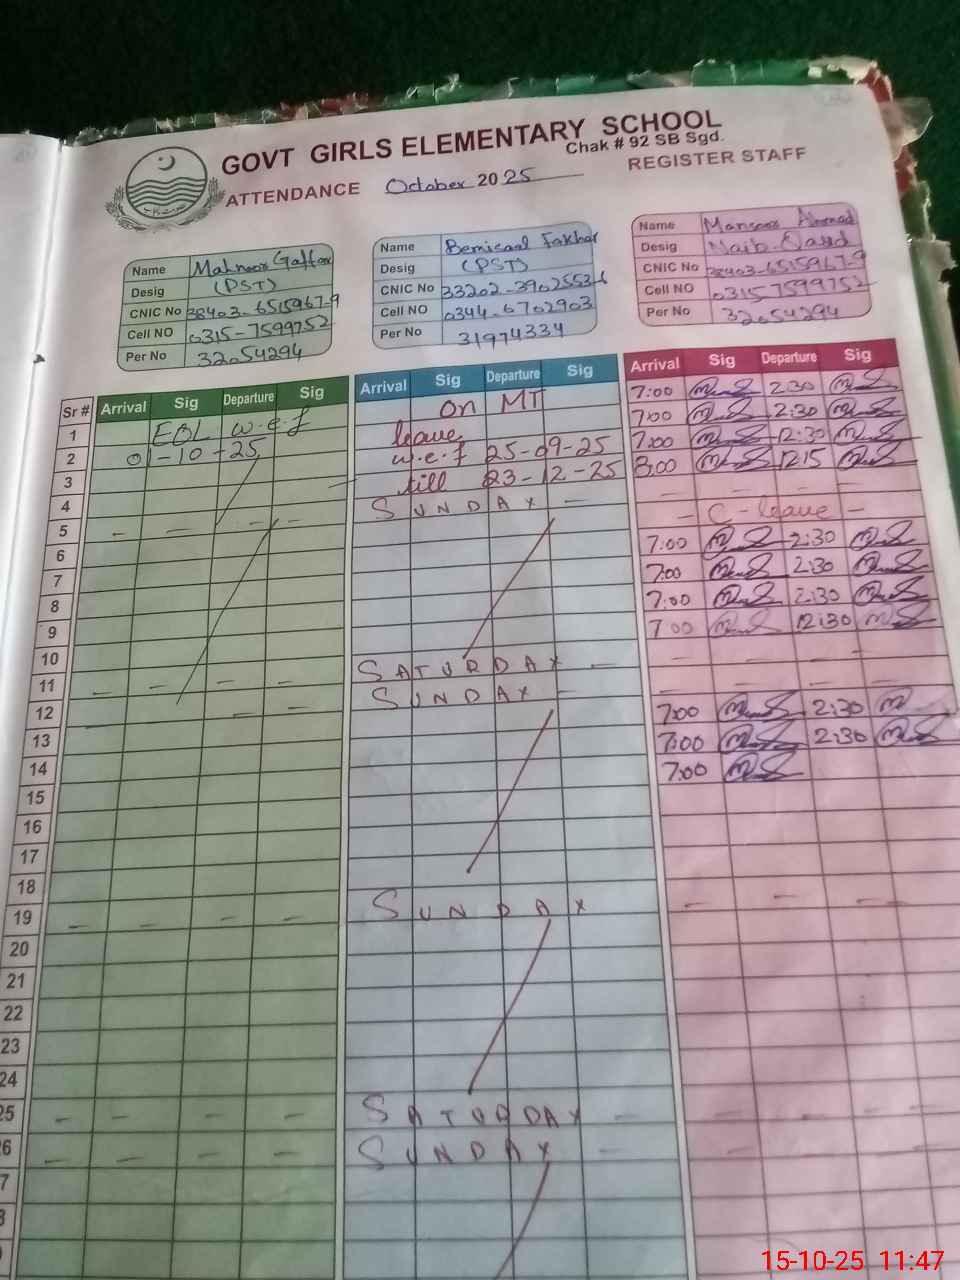 GOVT GIRLS ELEMENTARY SCHOOL
Chak # 92 SB Sgd.
ATTENDANCE October 2025 REGISTER STAFF
Name Mahnoor Gaffar
Desig (PST)
CNIC No 38403-6515967-9
Cell NO 0315-7599752
Per No 32054294
Name Fakhar
Desig (PST)
CNIC No
Cell NO 0344-6702903
Per No 31974334
Name Mansoor Ahmad
Desig Naib Qasid
CNIC No 38403-6515967-9
Cell NO 0315 7599752
Per No 32054294
Sr # Arrival Sig Departure Sig Arrival Sig Departure Sig Arrival Sig Departure Sig
1 EOL w.e.f On MT 7:00 2:30
2 01-10-25 leave 7:00 2:30
3 w.e.f 25-09-25 7:00 12:30
4 till 23-12-25 8:00 12:15
5 SUNDAY
6 C-leave
7 7:00 2:30
8 7:00 2:30
9 7:00 2:30
10 7:00 12:30
11 SATURDAY
12 SUNDAY
13 7:00 2:30
14 7:00 2:30
15 7:00
16
17
18
19 SUNDAY
20
21
22
23
24
25 SATURDAY
26 SUNDAY
7
8
15-10-25 11:47